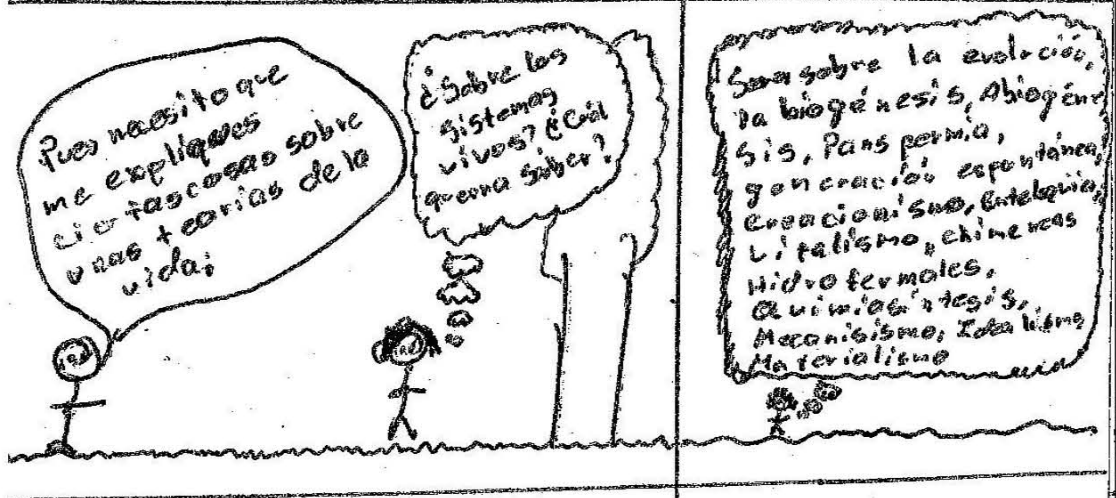 Pues necesito que
me expliques
ciertas cosas sobre
unas teorias de la
vida;
¿Sobre los
sistemas
vivos? ¿Cuál
querrra saber?
Sera sobre la evolución,
la biogénesis, Abiogéne
sis, Panspermia,
generación espontánea,
Creacionismo, Entelequia,
Vitalismo, chimeneas
Hidrotermales,
Quimiosíntesis,
Mecanisismo, Idealismo
Materialismo